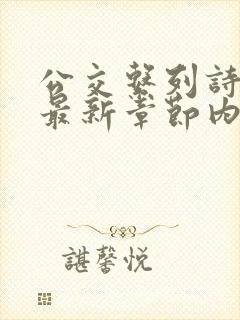 公交系列詩
最新章節內
諶馨悅